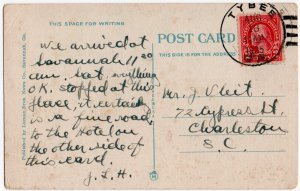 THIS SPACE FOR WRITING
POST CARD
THIS SIDE IS FOR THE ADDRESS
TYBEE
we arrived at
Savannah 11 20
am. Sat.
OK. stopped at this
place, it certain
is a fine road
to the Hotel on
the other side of
this card.
J. L. H.
Mr. J.
72 Cypress St.
Charleston
S.C.
Published by Lyman Bros. News Co. Savannah, Ga.